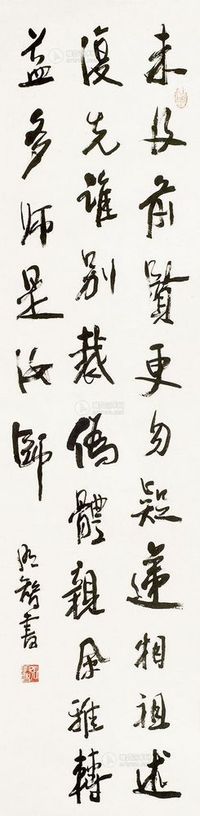 未及前賢更勿疑遞相祖述
復先誰別裁偽體親風雅轉
益多師是汝師